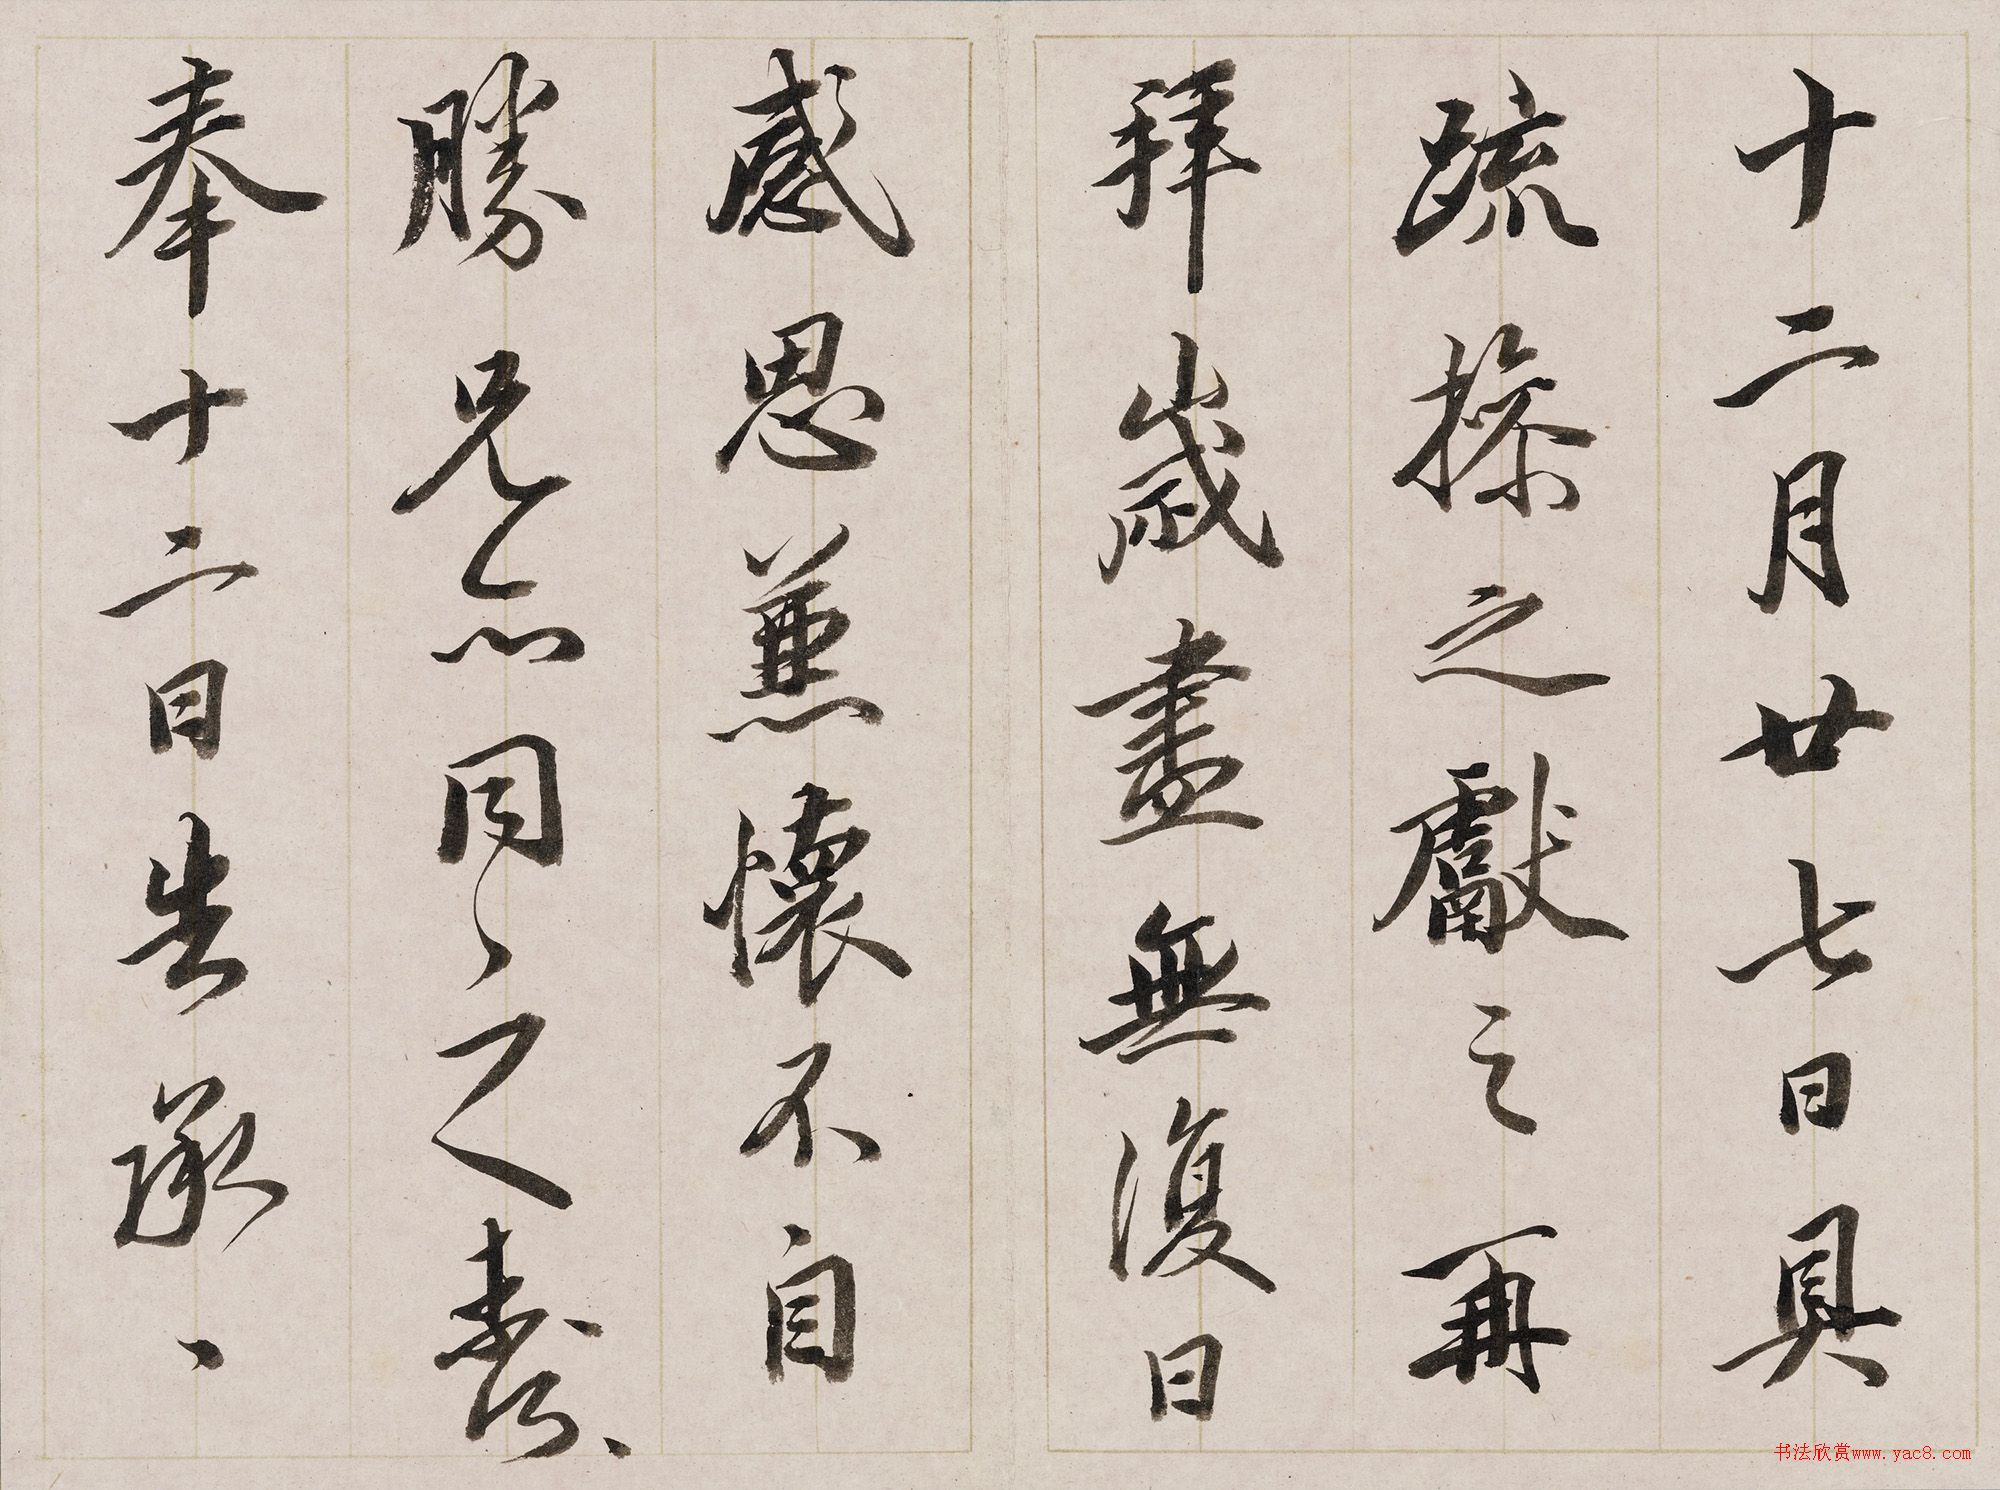 十二月廿七日具
疏操之獻之再
拜歲盡無復日
感思兼懷不自
勝兄亦同
奉十二日告承
书法欣赏www.yac8.com